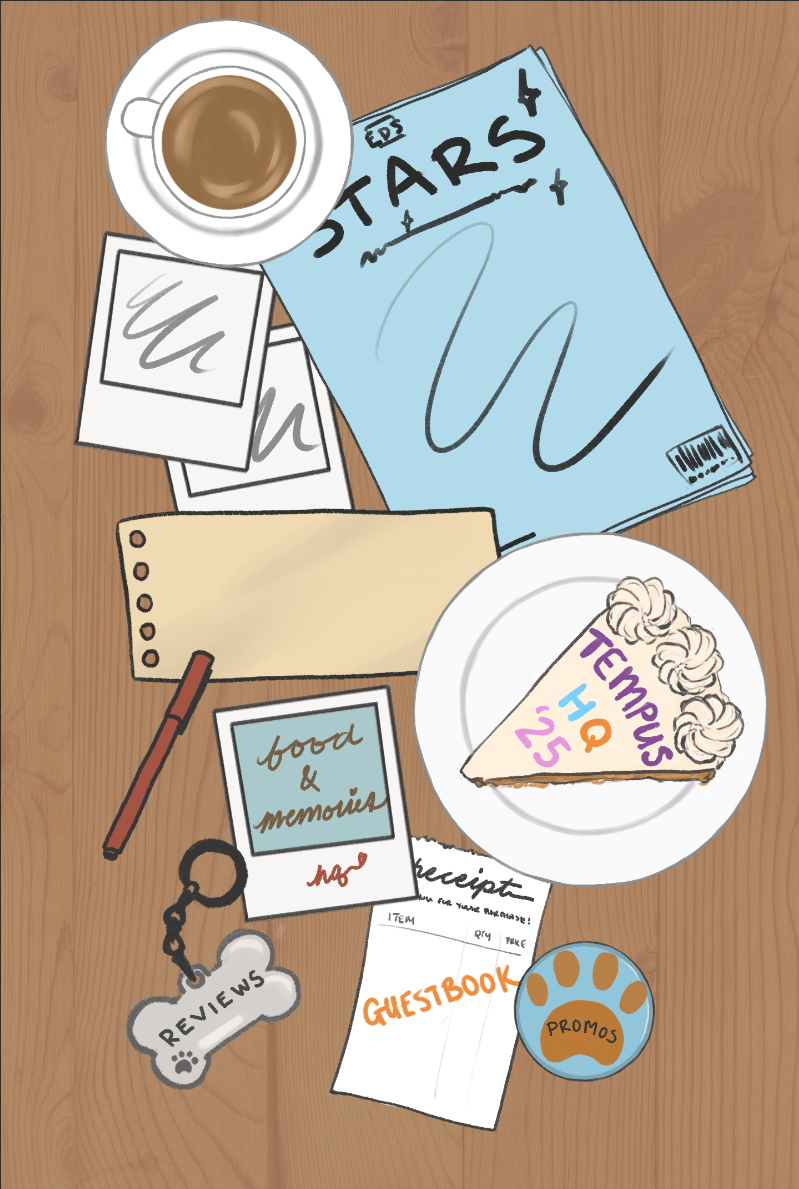 EDS
STARS
TEMPUS
HQ
'25
food
&
memories
hq
receipt
FOR YOUR PURCHASE!
ITEM QTY PRICE
GUESTBOOK
REVIEWS
PROMOS